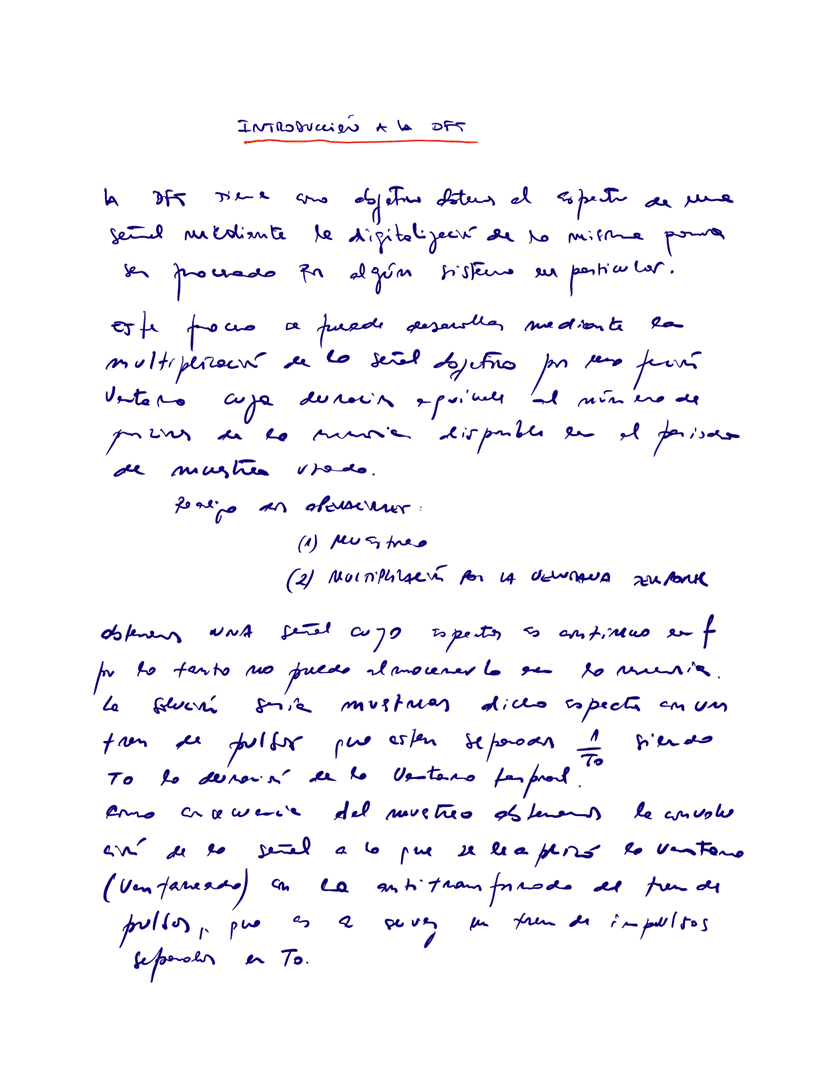 INTRODUCCIÓN A la DFT
la DFT tiene como objetivo obtener el espectro de una
señal mediante la digitalización de la misma para
ser procesado en algún sistema en particular.
este proceso se puede desarrollar mediante la
multiplicación de la señal objetivo por una función
Ventana cuya duración equivale al número de
de la memoria disponible en el periodo
de muestreo usado.
operaciones:
(1) Muestreo
(2) MULTIPLICACIÓN POR LA VENTANA TEMPORAL
obtenemos UNA señal cuyo espectro es continuo en f
por lo tanto no puedo almacenarlo en la memoria.
La solución sería muestrear dicho espectro con un
tren de pulsos que esten separados 1/To siendo
To la duración de la Ventana temporal.
Como consecuencia del muestreo obtenemos la convolu
ción de la señal a la que se le aplicó la ventana
(Ventaneado) con la antitransformada del tren de
pulsos, que es a su vez un tren de impulsos
separados en To.